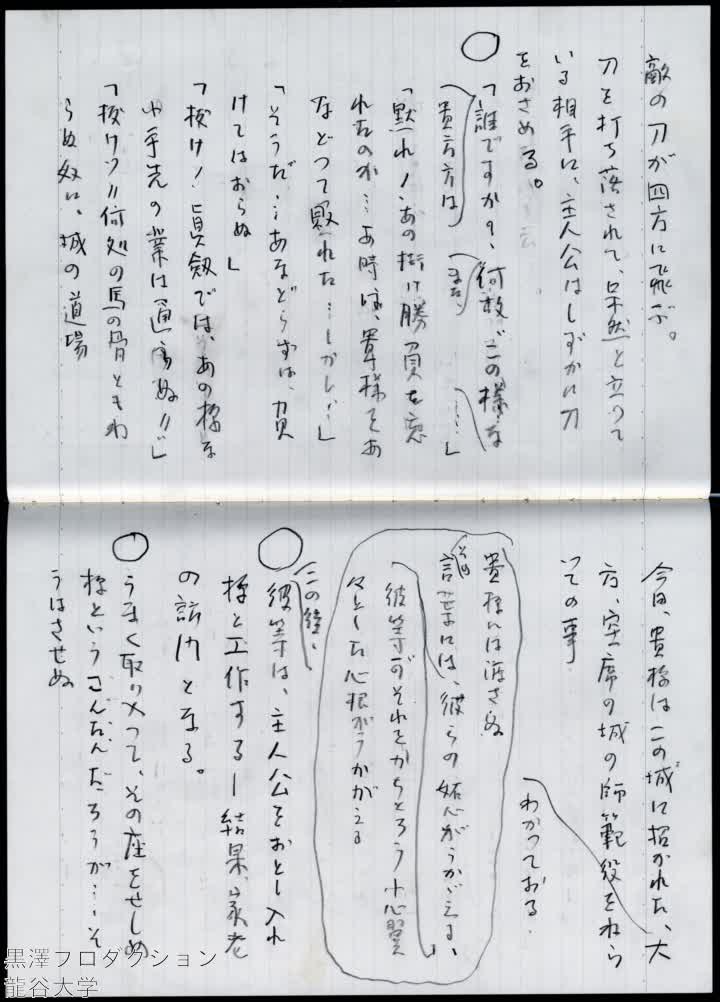 敵の刀が四方に飛ぶ。
刀を打ち落されて、呆然と立つて
いる相手に、主人公はしずかに刀
をおさめる。
「誰ですか?、何故、この様な
貴方方は
また
……」
「黙れ!、あの掛け勝負を忘
れたのか…あ時は、貴様をあ
などつて敗れた…しかし…」
「そうだ…あなどらずは、負
けてはおらぬ」
「抜け!眞剱では、あの様な
小手先の業は通らぬ!!」
「抜けツ!!何処の馬の骨ともわ
らぬ奴に、城の道場
今日、貴様はこの城に招かれた、大
方、空席の城の師範役をねら
いての事
わかつておる
貴様には渡さぬ
その
言葉には、彼らの妬心がうかゞえる、
彼等がそれをかちとろう
々とした心根がうかがえる
この後、
彼等は、主人公をおとし入れ
様と工作する―結果、家老
の
となる。
うまく取り入つて、その座をせしめ
様というこんたんだろうが…そ
うはさせぬ
黒澤プロダクション
龍谷大学